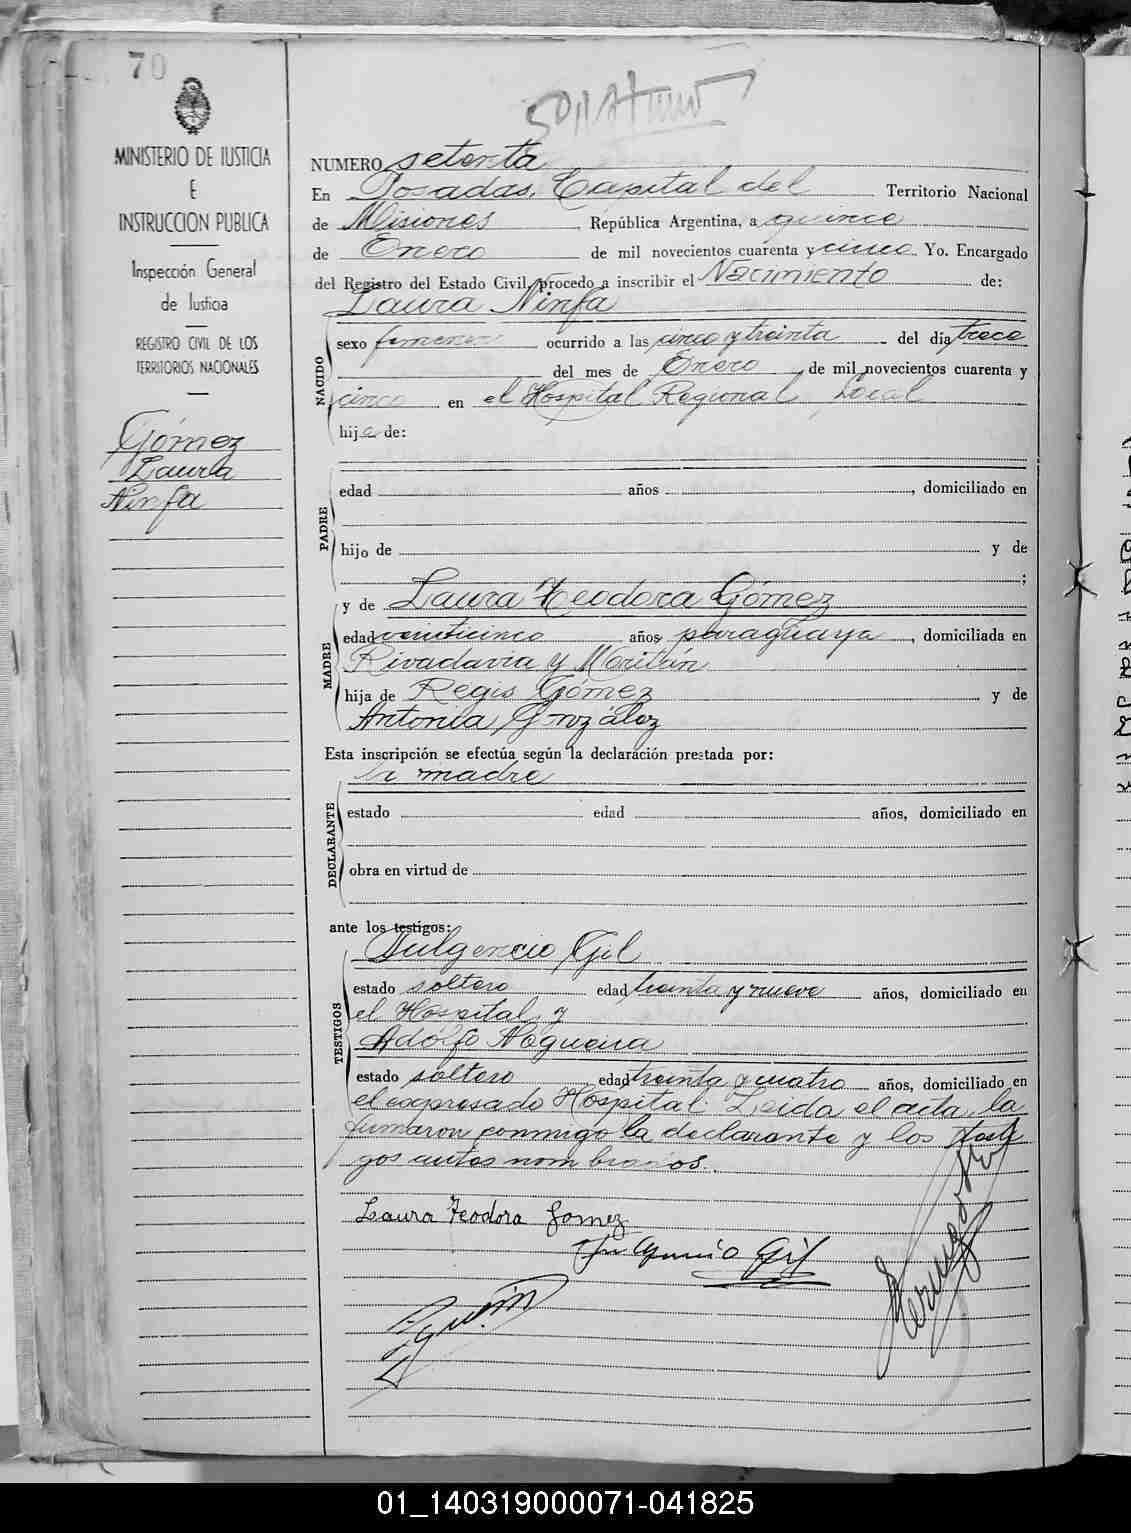 70
MINISTERIO DE JUSTICIA
E
INSTRUCCION PUBLICA
Inspección General
de Justicia
REGISTRO CIVIL DE LOS
TERRITORIOS NACIONALES
Gómez
Laura
Ninfa
NUMERO setenta
En Posadas, Capital del Territorio Nacional
de Misiones, República Argentina, a quince
de Enero de mil novecientos cuarenta y cinco Yo. Encargado
del Registro del Estado Civil, procedo a inscribir el Nacimiento de:
Laura Ninfa
NACIDO
sexo femenino ocurrido a las cinco y treinta del día trece
del mes de Enero, de mil novecientos cuarenta y
cinco en el Hospital Regional Local
hija de:
PADRE
edad años , domiciliado en
hijo de y de
;
y de Laura Teodora Gómez
MADRE
edad veinticinco años, paraguaya, domiciliada en
Rivadavia y
hija de Regis Gómez y de
Antonia González
Esta inscripción se efectúa según la declaración prestada por:
la madre
DECLARANTE
estado edad años, domiciliado en
obra en virtud de
ante los testigos:
Fulgencio Gil
TESTIGOS
estado soltero edad treinta y nueve años, domiciliado en
el Hospital y
Adolfo Nogueira
estado soltero edad treinta y cuatro años, domiciliado en
el expresado Hospital. Leida el acta, la
firmaron conmigo la declarante y los testi
gos antes nombrados.
Laura Teodora Gomez
Fulgencio Gil
01_140319000071-041825